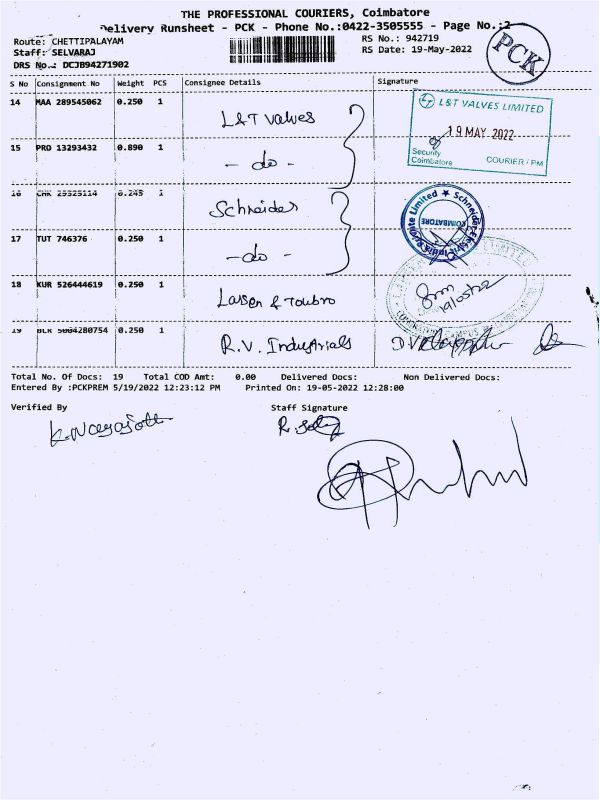 THE PROFESSIONAL COURIERS, Coimbatore
Delivery Runsheet - PCK - Phone No.:0422-3505555 - Page No.:2
Route: CHETTIPALAYAM
RS No.: 942719
Staff: SELVARAJ
RS Date: 19-May-2022
DRS No.: DCJB94271902
PCK
S No Consignment No Weight PCS Consignee Details Signature
14 MAA 289545062 0.250 1 L&T Valves
L&T VALVES LIMITED
19 MAY 2022
Security
Coimbatore COURIER : PM
15 PRO 13293432 0.890 1 - do -
16 CHK 25325114 0.245 1 Schneider
COIMBATORE
17 TUT 746376 0.250 1 - do -
18 KUR 526444619 0.250 1 Larsen & Toubro
19/05/22
19 BLR 5064280754 0.250 1 R.V. Industrials
Total No. Of Docs: 19 Total COD Amt: 0.00 Delivered Docs: Non Delivered Docs:
Entered By :PCKPREM 5/19/2022 12:23:12 PM Printed On: 19-05-2022 12:28:00
Verified By Staff Signature